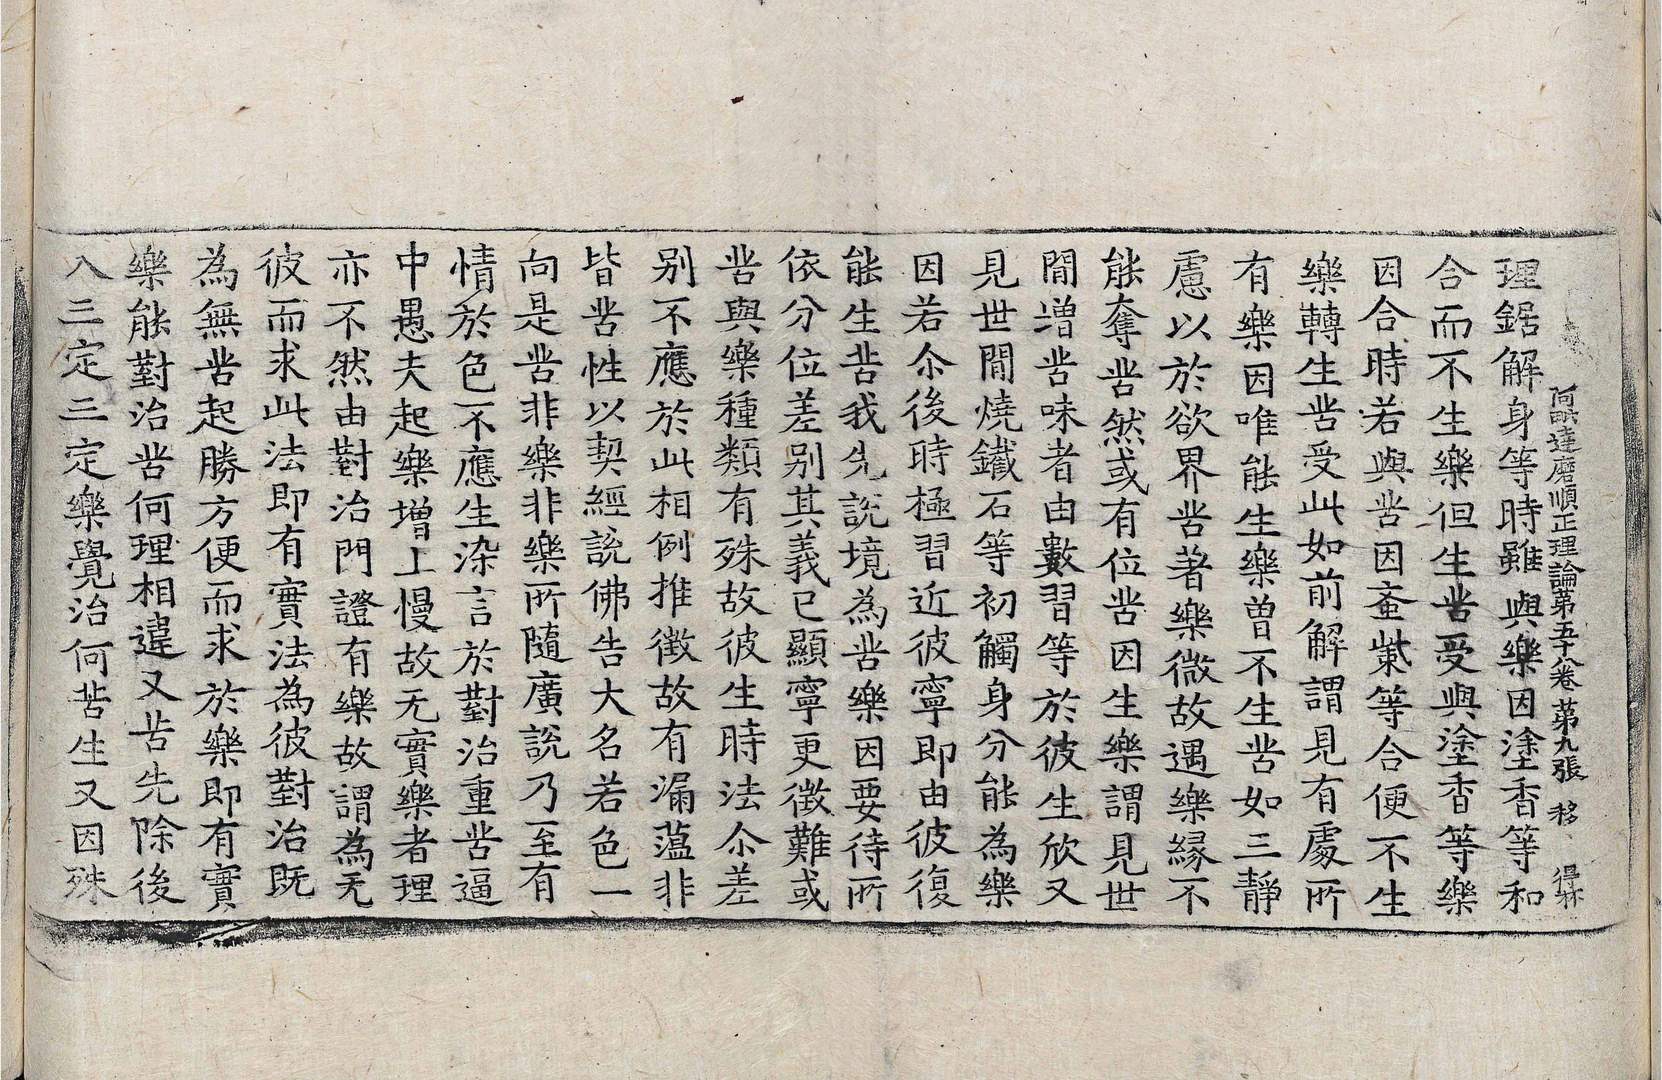 阿毗達磨順正理論第五十八卷 第九張 移
理鋸解身等時雖與樂因塗香等和
合而不生樂但生苦受與塗香等樂
因合時若與苦因蚉䖧等合便不生
樂轉生苦受此如前解謂見有處所
有樂因唯能生樂曾不生苦如三靜
慮以於欲界苦著樂微故遇樂緣不
能奪苦然或有位苦因生樂謂見世
間增苦味者由數習等於彼生欣又
見世間燒鐵石等初觸身分能為樂
因若尒後時極習近彼寧即由彼復
能生苦我先說境為苦樂因要待所
依分位差別其義已顯寧更徵難或
苦與樂種類有殊故彼生時法尒差
別不應於此相例推徵故有漏薀非
皆苦性以契經說佛告大名若色一
向是苦非樂非樂所隨廣說乃至有
情於色不應生染言於對治重苦逼
中愚夫起樂增上慢故无實樂者理
亦不然由對治門證有樂故謂為无
彼而求此法即有實法為彼對治既
為無苦起勝方便而求於樂即有實
樂能對治苦何理相違又苦先除後
入三定三定樂覺治何苦生又因殊